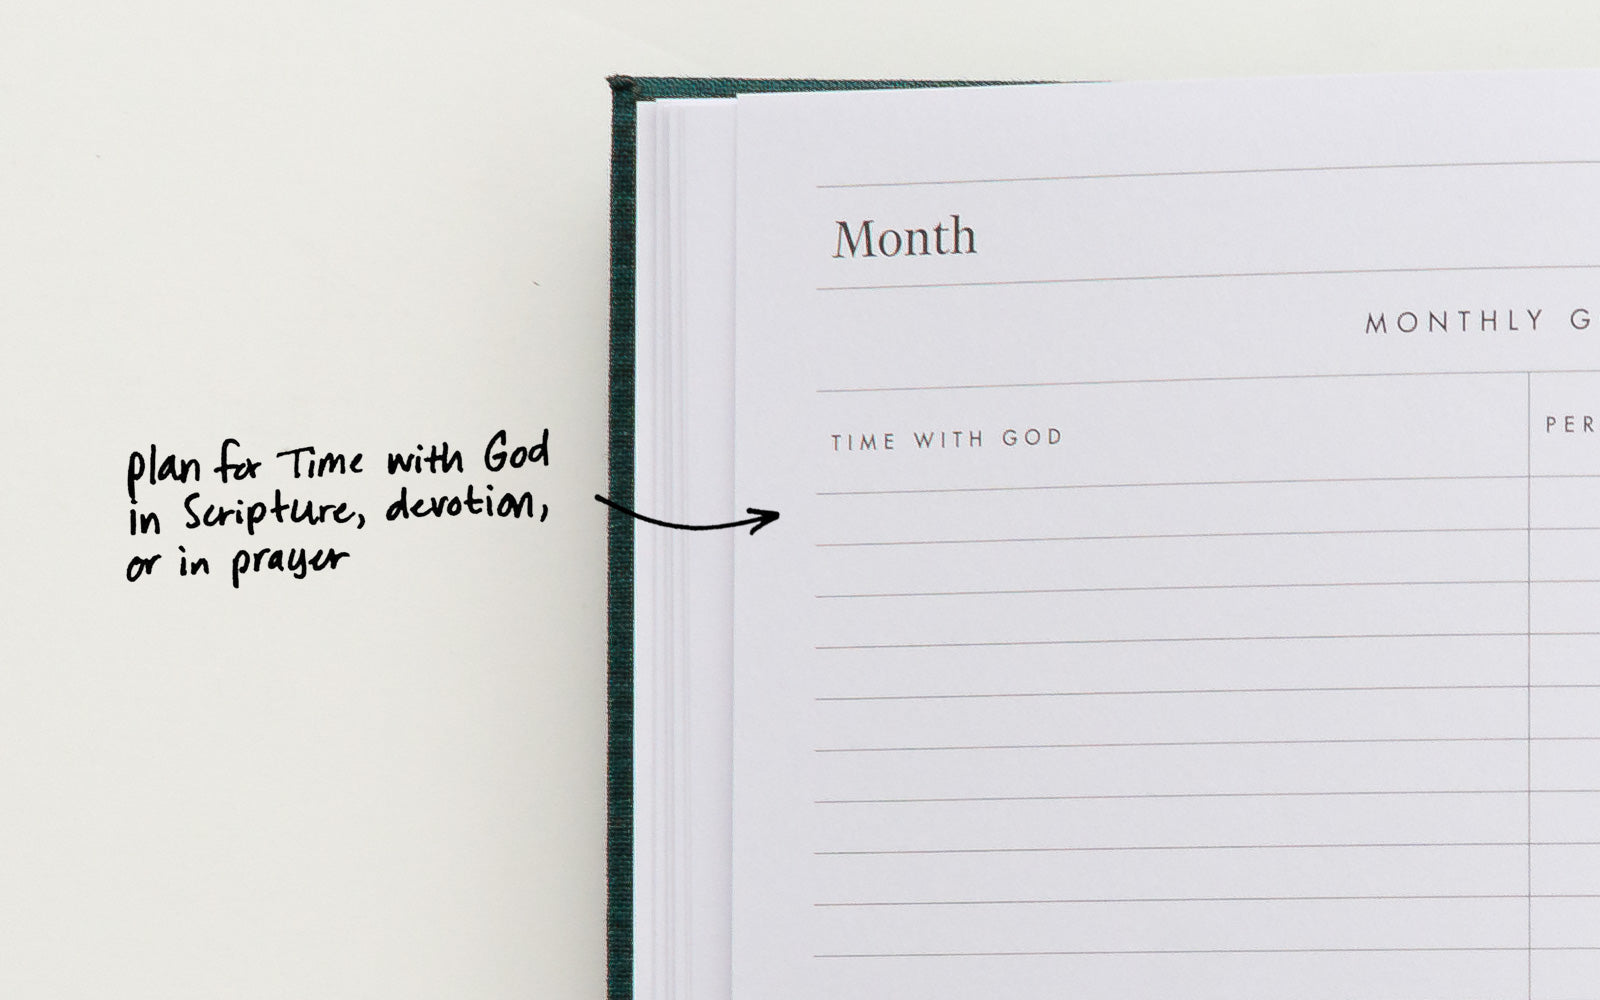 Month
MONTHLY G
TIME WITH GOD
PER
plan for Time with God
in Scripture, devotion,
or in prayer